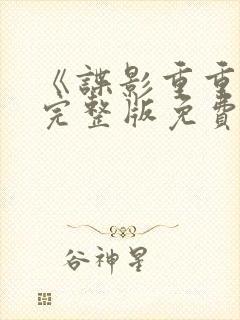 《諜影重重
完整版免費
谷神星